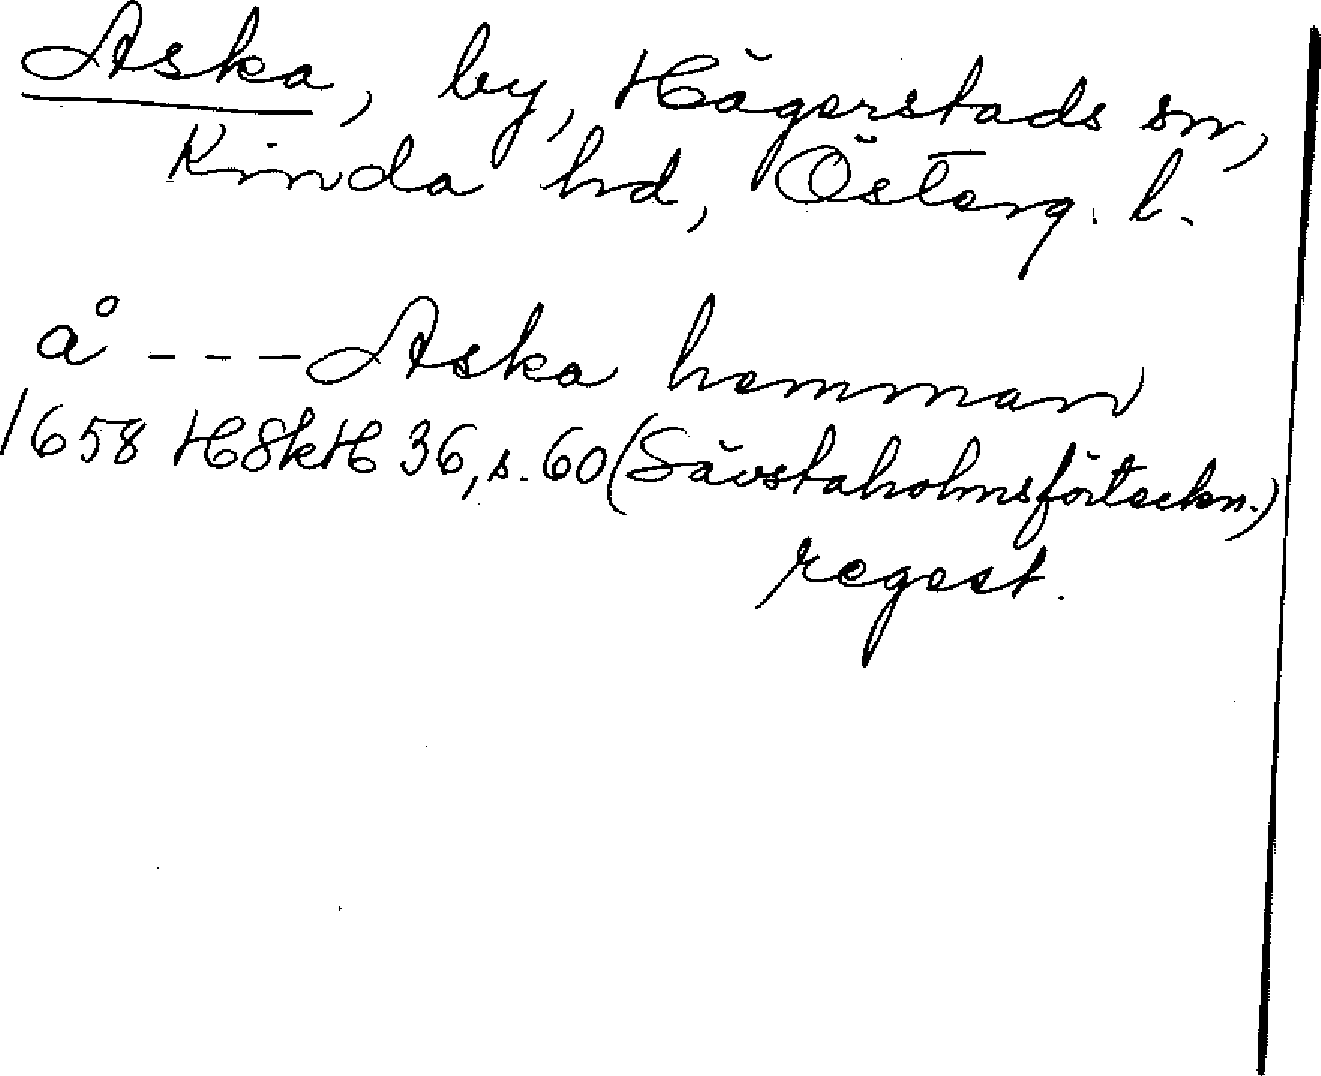 Aska, by, Hägerstads sn,
Kinda hd, Österg. l.
å --- Aska hemman
1658 HSkH 36, s. 60 (Sävstaholmsförteckn.)
regest.